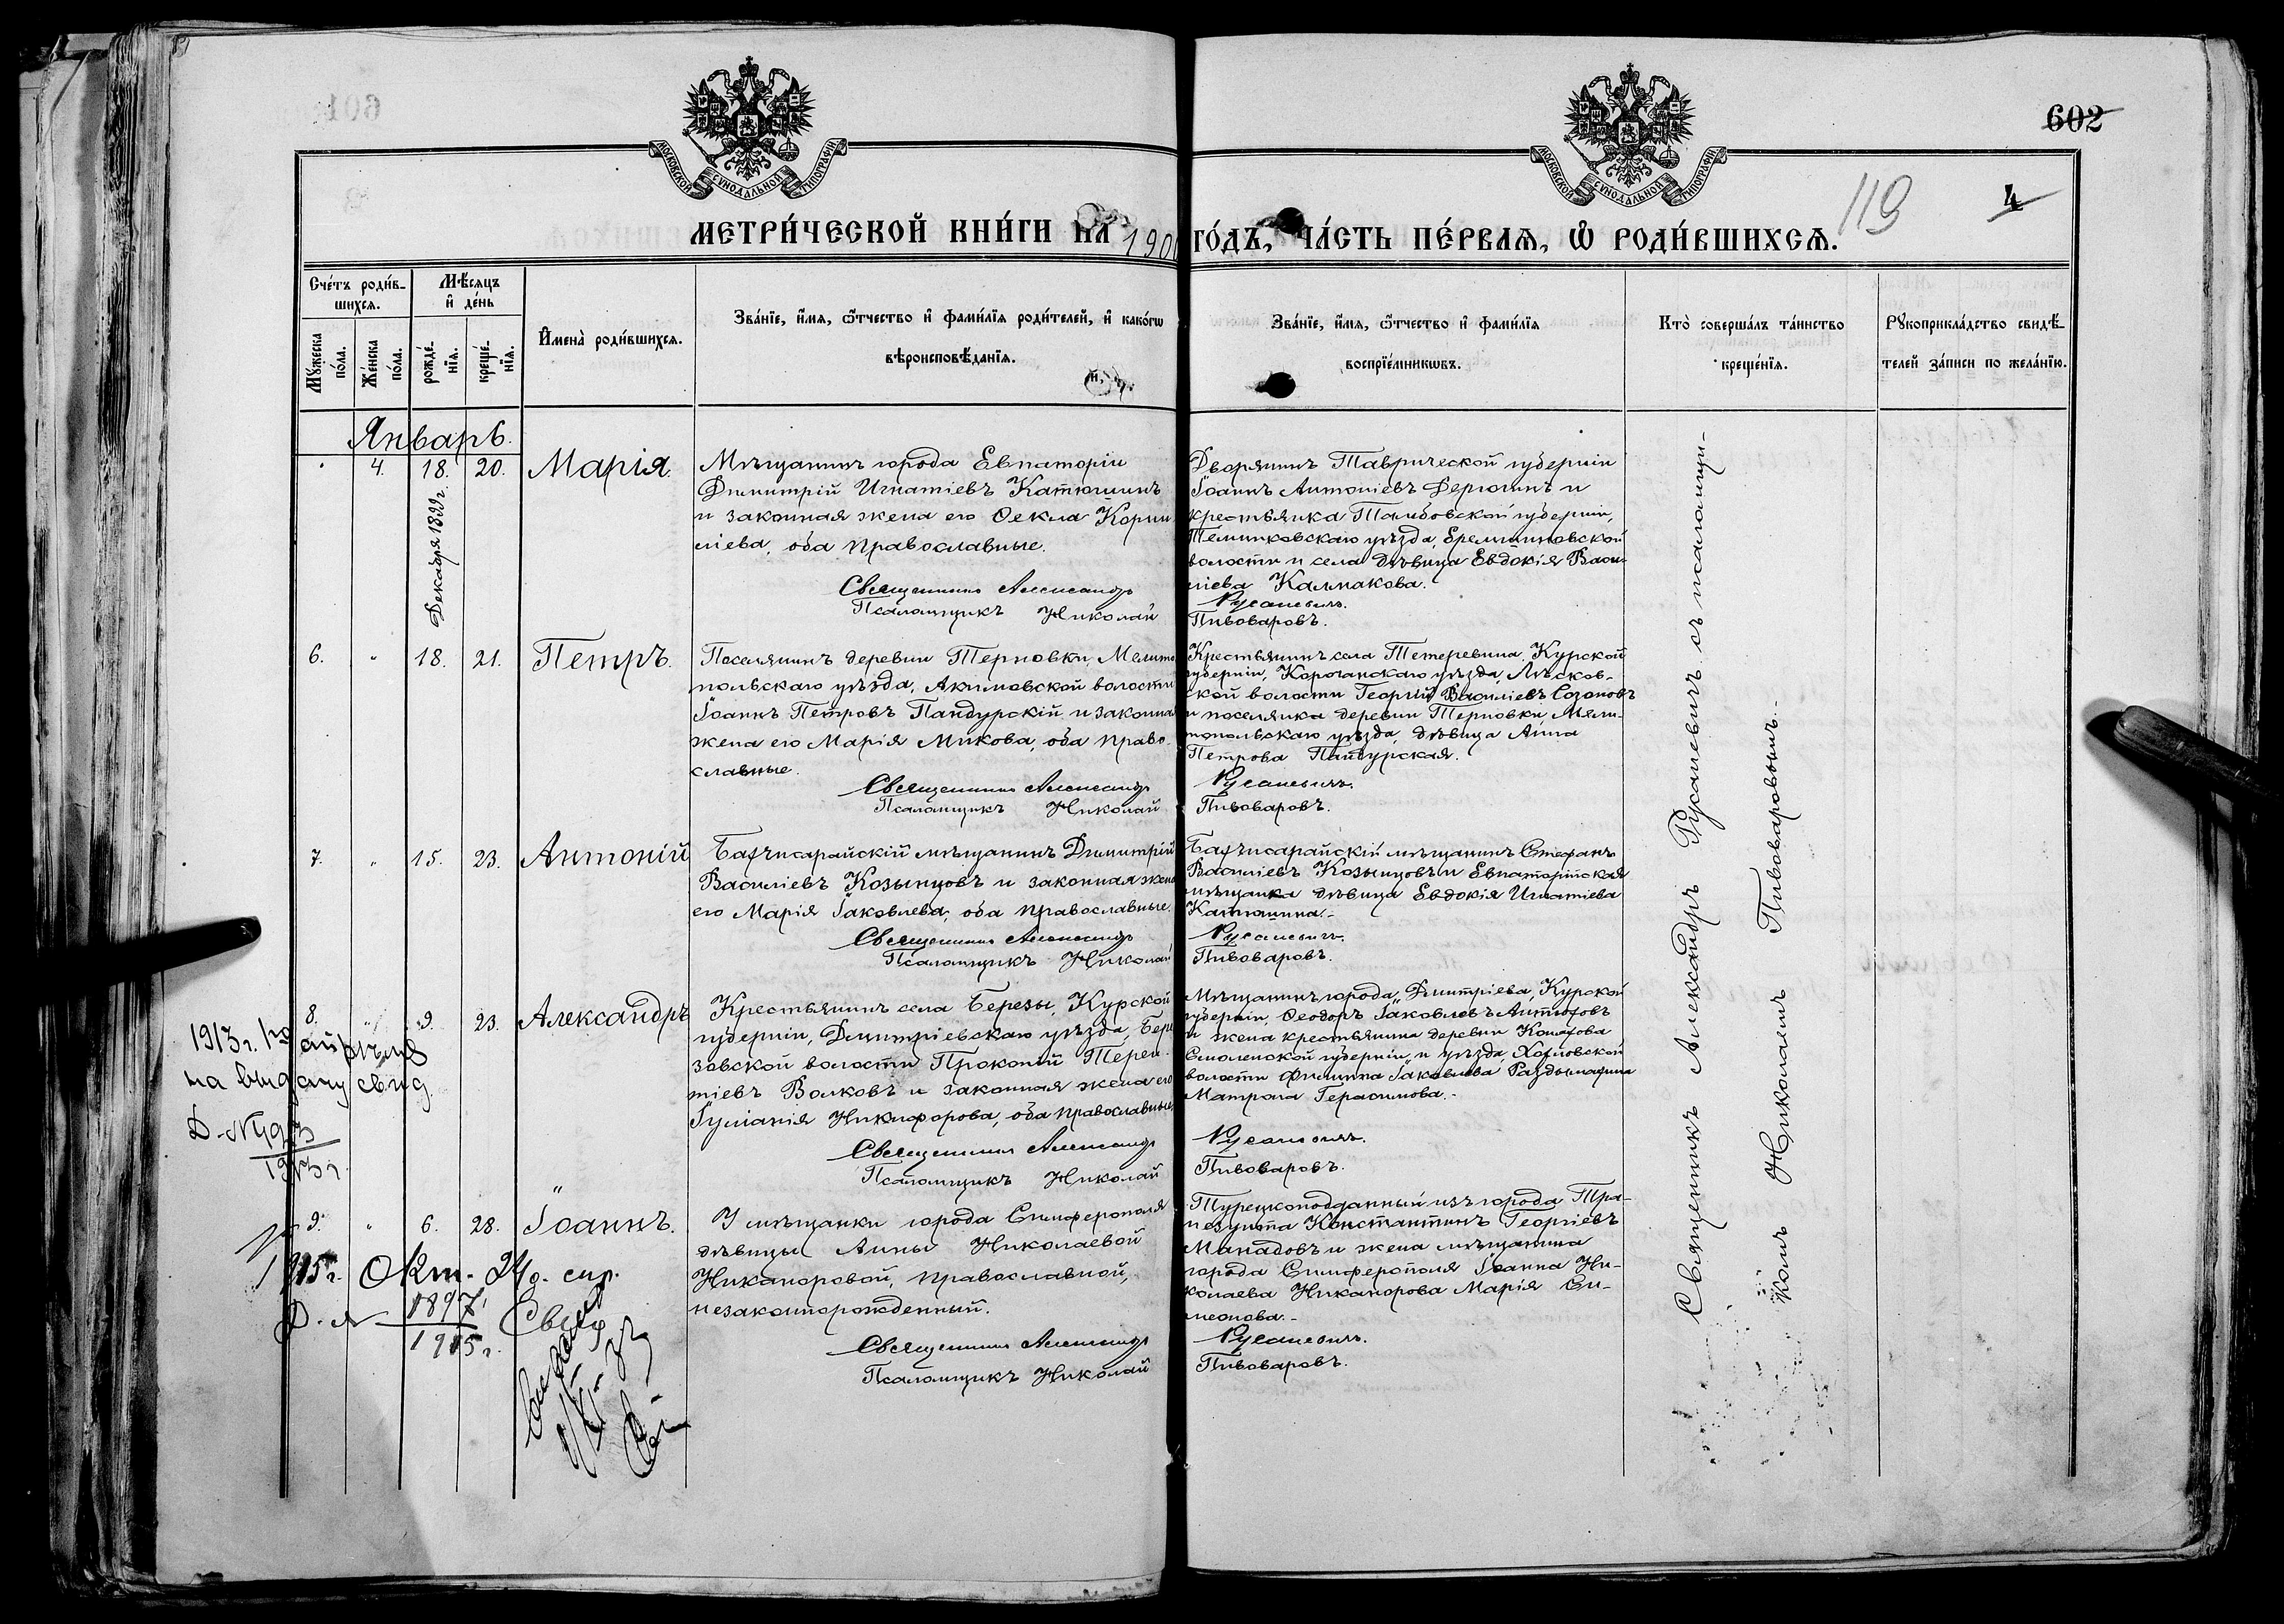 602
119
4
МОСКОВСКОЙ СУНОДАЛЬНОЙ ТИПОГРАФІИ
МОСКОВСКОЙ СУНОДАЛЬНОЙ ТИПОГРАФІИ
МЕТРИ́ЧЕСКОЙ КНИ́ГИ НА 1900 ГО́ДЪ, ЧА́СТЬ ПЕ́РВАѦ, Ѡ РОДИ́ВШИХСѦ.
Сче́тъ роди́в-
шихсѧ.
Мѣсѧцъ
и де́нь
Мꙋжеска по́ла.
Же́нска по́ла.
рожде́-
нїѧ.
креще́-
нїѧ.
Имена̀ роди́вшихсѧ.
Зва́нїе, и́мѧ, ѻ́тчество и фами́лїѧ роди́телей, и како́гѡ
вѣроисповѣ́данїѧ.
Зва́нїе, и́мѧ, ѻ́тчество и фами́лїѧ
воспрїе́мникѡвъ.
Кто̀ соверша́лъ та́инство
креще́нїѧ.
Рꙋкоприкла́дство свидѣ́-
телей за́писи по жела́нїю.
Январь.
4. 18. 20. Марія.
Декабря 1899 г.
Мѣщанинъ города Евпаторіи
Димитрій Игнатіевъ Катюшинъ
и законная жена его Ѳекла Корни
ліева, оба православные.
Священникъ Александръ
Псаломщикъ Николай
Дворянинъ Таврической губерніи
Іоаннъ Антоніевъ Дерюгинъ и
крестьянка Тамбовской губерніи,
Темниковскаго уѣзда, Еремшинской
волости и села дѣвица Евдокія Васи-
ліева Калмакова.
Русаневичъ.
Пивоваровъ.
6. " 18. 21. Петръ.
Поселянинъ деревни Терновки, Мелито
польскаго уѣзда, Акимовской волости
Іоаннъ Петровъ Пандурскій и законна
жена его Марія Микова, оба право-
славные.
Священникъ Александръ
Псаломщикъ Николай
Крестьянинъ села Тетеревина, Курской
губерніи, Корочанскаго уѣзда, Лѣсков-
ской волости Георгій Василіевъ Созоновъ
и поселянка деревни Терновки, Мели-
топольскаго уѣзда, дѣвица Анна
Петрова Пандурская.
Русаневичъ.
Пивоваровъ.
7. " 15. 23. Антоній
Бахчисарайскій мѣщанинъ Димитрій
Василіевъ Козынцовъ и законная жена
его Марія Іаковлева, оба православные.
Священникъ Александръ
Псаломщикъ Николай
Бахчисарайскій мѣщанинъ Стефанъ
Василіевъ Козынцовъ и Евпаторійская
мѣщанка дѣвица Евдокія Игнатіева
Катюшина.-
Русаневичъ.
Пивоваровъ.
8. " 9. 23. Александръ
Крестьянинъ села Березы, Курской
губерніи, Димитріевскаго уѣзда, Бере
зовской волости Прокопій Терен-
тіевъ Волковъ и законная жена его
Іуліанія Никифорова, оба православные.
Священникъ Александръ
Псаломщикъ Николай
Мѣщанинъ города Дмитріева, Курской
губерніи, Ѳеодоръ Іаковлевъ Антюховъ
и жена крестьянина деревни
Смоленской губерніи и уѣзда, Хохловской
волости Филиппа Іаковлева
Матрона Герасимова.-
Русаневичъ.
Пивоваровъ.
1913 г. 1го апрѣля
на выдачу свид.
1913 г.
9. " 6. 28. Іоаннъ.
У мѣщанки города Симферополя
дѣвицы Анны Николаевой
Никаноровой, православной,
незаконнорожденный.
Священникъ Александръ
Псаломщикъ Николай
Турецкоподданный изъ города Тра-
пезунта Константинъ Георгіевъ
Манадовъ и жена мѣщанина
города Симферополя Іоанна Ни-
колаева Никанорова Марія Си-
меонова.-
Русаневичъ.
Пивоваровъ.
1915 г. Окт. 24 д.
1897
1915 г.
Священникъ Александръ Русаневичъ съ псаломщи-
комъ Николаемъ Пивоваровымъ.-